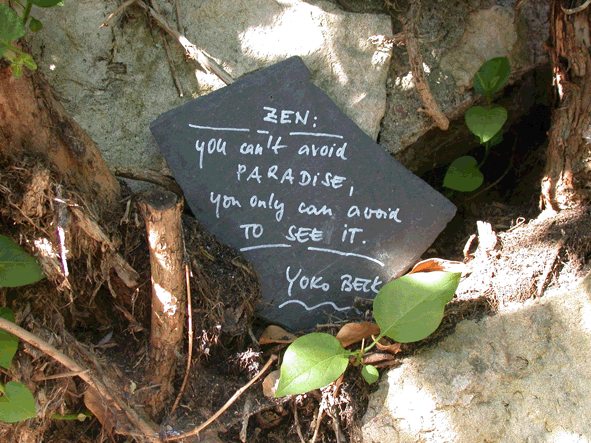 ZEN:
you can't avoid
PARADISE,
you only can avoid
TO SEE IT.
YOKO BECK